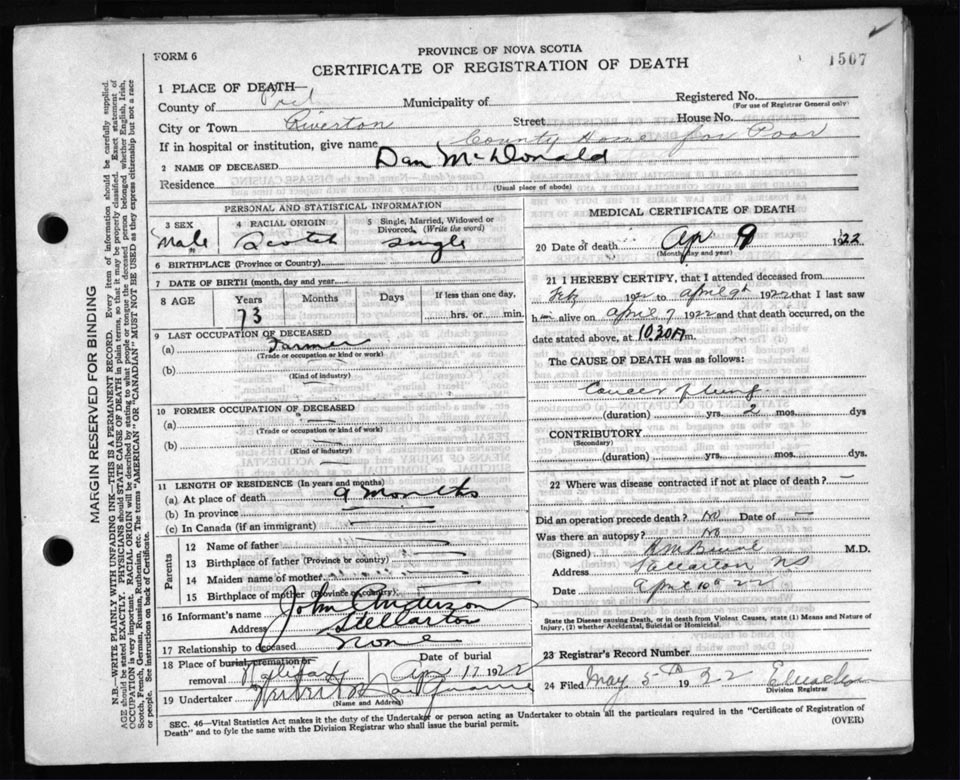 PROVINCE OF NOVA SCOTIA
FORM 6
CERTIFICATE OF REGISTRATION OF DEATH
1507
1 PLACE OF DEATH—
County of Pict Municipality of Registered No.
(For use of Registrar General only)
City or Town Riverton Street House No.
If in hospital or institution, give name County Home for Poor
2 NAME OF DECEASED Dan McDonald
Residence
(Usual place of abode)
PERSONAL AND STATISTICAL INFORMATION
3 SEX Male
4 RACIAL ORIGIN Scotch
5 Single, Married, Widowed or Divorced. (Write the word) Single
6 BIRTHPLACE (Province or Country)
7 DATE OF BIRTH (month, day and year)
8 AGE Years 73 Months Days If less than one day, hrs. or min.
9 LAST OCCUPATION OF DECEASED
(a) Farmer
(Trade or occupation or kind or work)
(b)
(Kind of industry)
10 FORMER OCCUPATION OF DECEASED
(a) —
(Trade or occupation or kind of work)
(b) —
(Kind of industry)
11 LENGTH OF RESIDENCE (In years and months)
(a) At place of death 9 months
(b) In province
(c) In Canada (if an immigrant)
Parents
12 Name of father
13 Birthplace of father (Province or country)
14 Maiden name of mother
15 Birthplace of mother (Province or country)
16 Informant's name John Anderson
Address Stellarton
17 Relationship to deceased None
18 Place of burial, cremation or removal Halifax Date of burial Apr 17 1922
19 Undertaker
(Name and Address)
MEDICAL CERTIFICATE OF DEATH
20 Date of death Apr 9 1922
(Month, day and year)
21 I HEREBY CERTIFY, that I attended deceased from
Feb 1922 to April 9th 1922 that I last saw
him alive on April 7 1922 and that death occurred, on the
date stated above, at 10.30 m.
The CAUSE OF DEATH was as follows:
Cancer of lung
(duration) yrs. 2 mos. dys
CONTRIBUTORY
(Secondary)
(duration) yrs. mos. dys.
22 Where was disease contracted if not at place of death? —
Did an operation precede death? No Date of —
Was there an autopsy? No
(Signed) M.D.
Address Stellarton NS
Date April 10th 22
State the Disease causing Death, or in death from Violent Causes, state (1) Means and Nature of Injury, (2) whether Accidental, Suicidal or Homicidal.
23 Registrar's Record Number
24 Filed May 5th 1922
Division Registrar
SEC. 46—Vital Statistics Act makes it the duty of the Undertaker or person acting as Undertaker to obtain all the particulars required in the "Certificate of Registration of
Death" and to fyle the same with the Division Registrar who shall issue the burial permit. (OVER)
MARGIN RESERVED FOR BINDING
N.B.—WRITE PLAINLY WITH UNFADING INK—THIS IS A PERMANENT RECORD. Every item of information should be carefully supplied.
AGE should be stated EXACTLY. PHYSICIANS should STATE CAUSE OF DEATH in plain terms, so that it may be properly classified. Exact statement of
OCCUPATION is very important. RACIAL ORIGIN will be described by stating to what people or tongue the deceased person belonged whether English, Irish,
Scotch, French, German, Russian, Ruthenian, etc. The terms "AMERICAN" or "CANADIAN" MUST NOT BE USED as they express citizenship but not a race
or people. See instructions on back of Certificate.